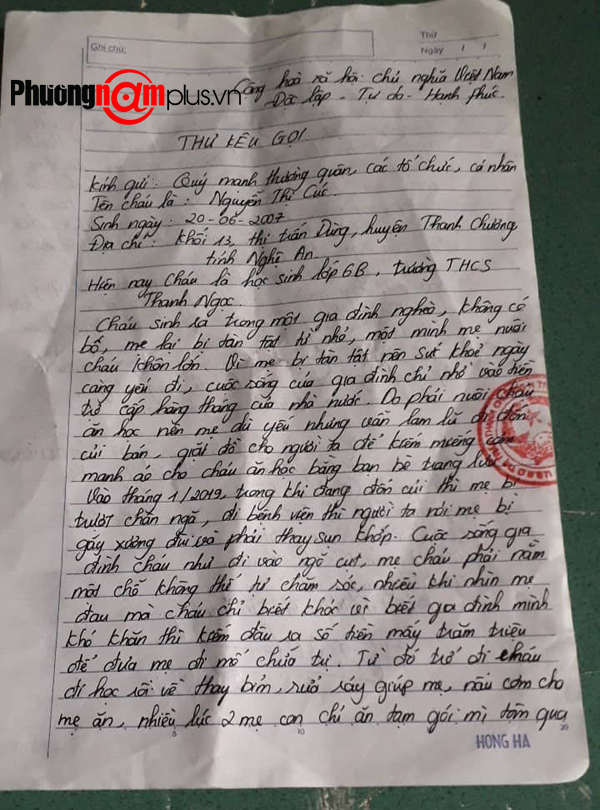 Ghi chú:
Thứ
Ngày / /
Phươngnamplus.vn
Cộng hoà xã hội chủ nghĩa Việt Nam
Độc lập - Tự do - Hạnh phúc
THƯ KÊU GỌI
Kính gửi: Quý mạnh thường quân, các tổ chức, cá nhân
Tên cháu là: Nguyễn Thị Cúc
Sinh ngày: 20-06-2007
Địa chỉ: Khối 13, thị trấn Dùng, huyện Thanh Chương,
tỉnh Nghệ An.
Hiện nay Cháu là học sinh lớp 6B, trường THCS
Thanh Ngọc.
Cháu sinh ra trong một gia đình nghèo, không có
bố, mẹ lại bị tàn tật từ nhỏ, một mình mẹ nuôi
cháu khôn lớn. Vì mẹ bị tàn tật nên sức khoẻ ngày
càng yếu đi, cuộc sống của gia đình chỉ nhờ vào tiền
trợ cấp hàng tháng của nhà nước. Do phải nuôi cháu
ăn học nên mẹ dù yếu nhưng vẫn lam lũ đi đốn
củi bán, giặt đồ cho người ta để kiếm miếng cơm
manh áo cho cháu ăn học bằng bạn bè trang lứa
Vào tháng 1/2019, trong khi đang đốn củi thì mẹ bị
trượt chân ngã, đi bệnh viện thì người ta nói mẹ bị
gãy xương đùi và phải thay sụn khớp. Cuộc sống gia
đình cháu như đi vào ngõ cụt, mẹ cháu phải nằm
một chỗ không thể tự chăm sóc, nhiều khi nhìn mẹ
đau mà cháu chỉ biết khóc vì biết gia đình mình
khó khăn thì kiếm đâu ra số tiền mấy trăm triệu
để đưa mẹ đi mổ chữa trị. Từ đó trở đi cháu
đi học rồi về thay bỉm, rửa ráy giúp mẹ, nấu cơm cho
mẹ ăn, nhiều lúc 2 mẹ con chỉ ăn tạm gói mì tôm qua
5 10 20
HONG HA